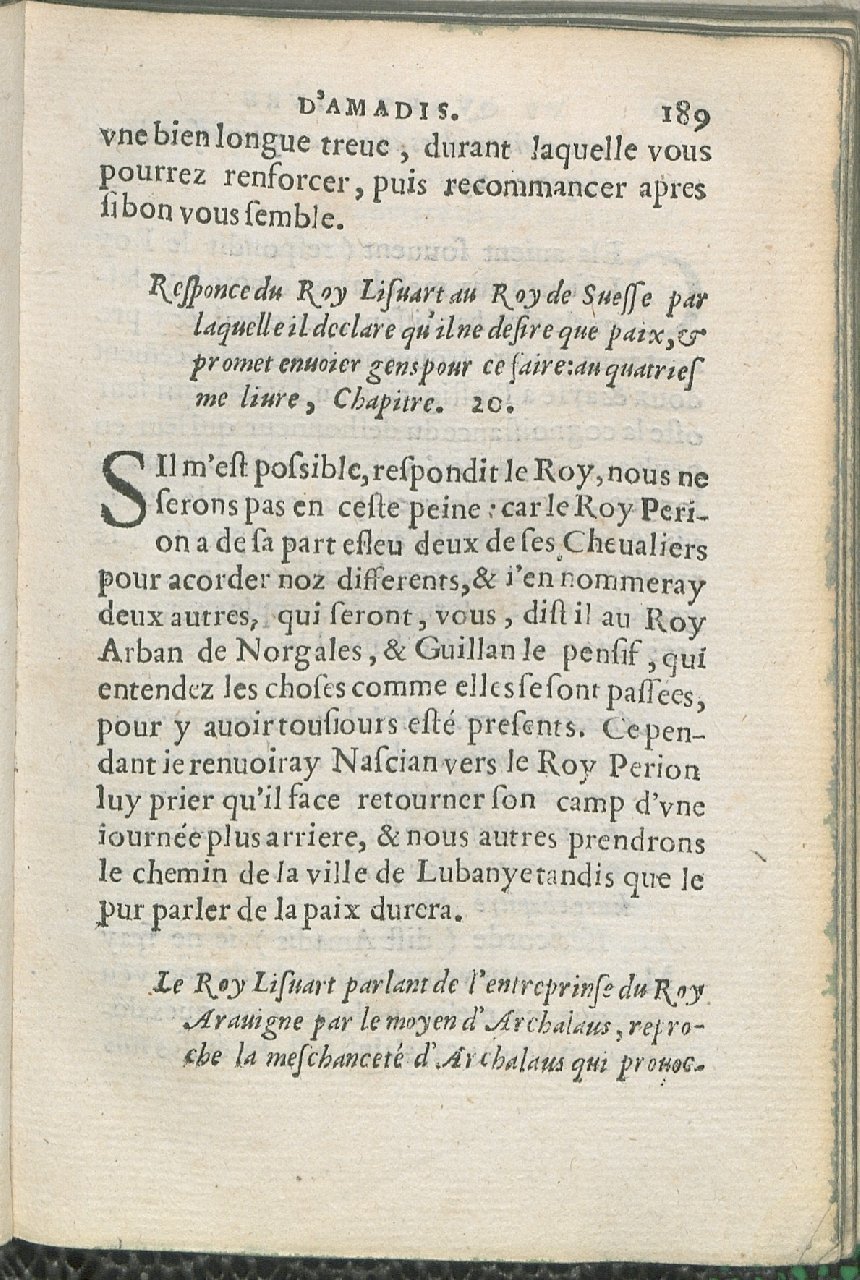 D'AMADIS. 189
vne bien longue treue, durant laquelle vous
pourrez renforcer, puis recommancer apres
si bon vous semble.
Responce du Roy Lisuart au Roy de Suesse par
laquelle il declare qu'il ne desire que paix, &
promet enuoier gens pour ce faire: au quatries
me liure, Chapitre. 20.
SIl m'est possible, respondit le Roy, nous ne
serons pas en ceste peine: car le Roy Peri-
on a de sa part esleu deux de ses Cheualiers
pour acorder noz differents, & i'en nommeray
deux autres, qui seront, vous, dist il au Roy
Arban de Norgales, & Guillan le pensif, qui
entendez les choses comme elles se sont passées,
pour y auoir tousiours esté presents. Cepen-
dant ie renuoiray Nascian vers le Roy Perion
luy prier qu'il face retourner son camp d'vne
iournée plus arriere, & nous autres prendrons
le chemin de la ville de Lubanye tandis que le
pur parler de la paix durera.
Le Roy Lisuart parlant de l'entreprinse du Roy
Arauigne par le moyen d'Archalaus, repro-
che la meschanceté d'Archalaus qui prouoc-